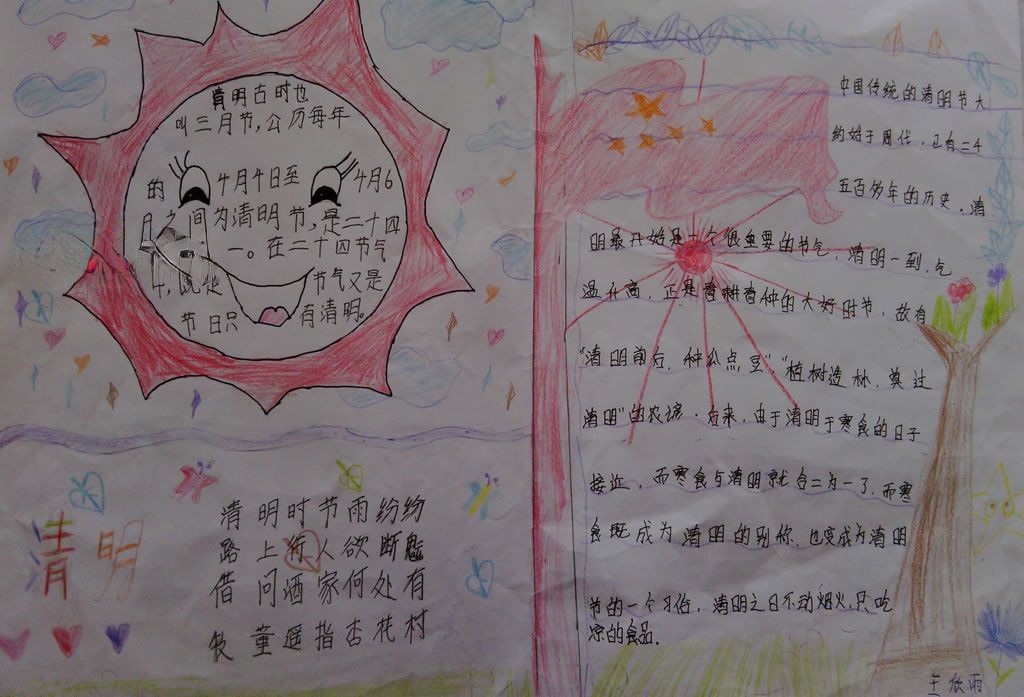 清明古时也
叫三月节,公历每年
的4月4日至4月6
日之间为清明节,是二十四
一。在二十四节气
节气又是
节日只有清明。
清明
清明时节雨纷纷
路上行人欲断魂
借问酒家何处有
牧童遥指杏花村
中国传统的清明节大
约始于周代,已有二千
五百多年的历史。清
明最开始是一个很重要的节气,清明一到,气
温升高,正是春耕春种的大好时节,故有
"清明前后,种瓜点豆","植树造林,莫过
清明"的农谚。后来,由于清明于寒食的日子
接近,而寒食与清明就合二为一了,而寒
食既成为清明的别你,也变成为清明
节的一个习俗,清明之日不动烟火,只吃
凉的食品。
王欣雨